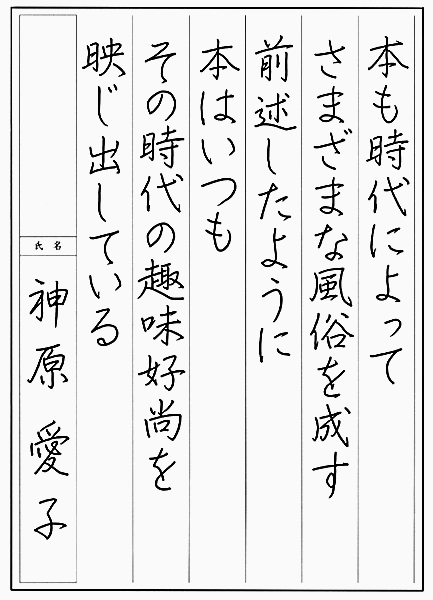 本も時代によって
さまざまな風俗を成す
前述したように
本はいつも
その時代の趣味好尚を
映じ出している
氏名
神原 愛子